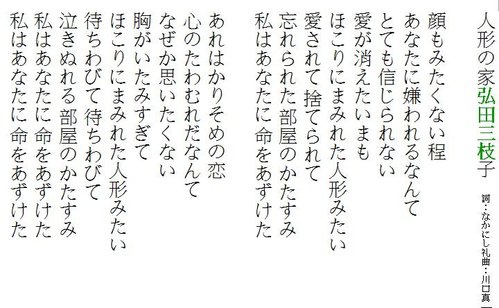 人形の家弘田三枝子
詞:なかにし礼曲:川口真
顔もみたくない程
あなたに嫌われるなんて
とても信じられない
愛が消えたいまも
ほこりにまみれた人形みたい
愛されて捨てられて
忘れられた部屋のかたすみ
私はあなたに命をあずけた
あれはかりそめの恋
心のたわむれだなんて
なぜか思いたくない
胸がいたみすぎて
ほこりにまみれた人形みたい
待ちわびて待ちわびて
泣きぬれる部屋のかたすみ
私はあなたに命をあずけた
私はあなたに命をあずけた